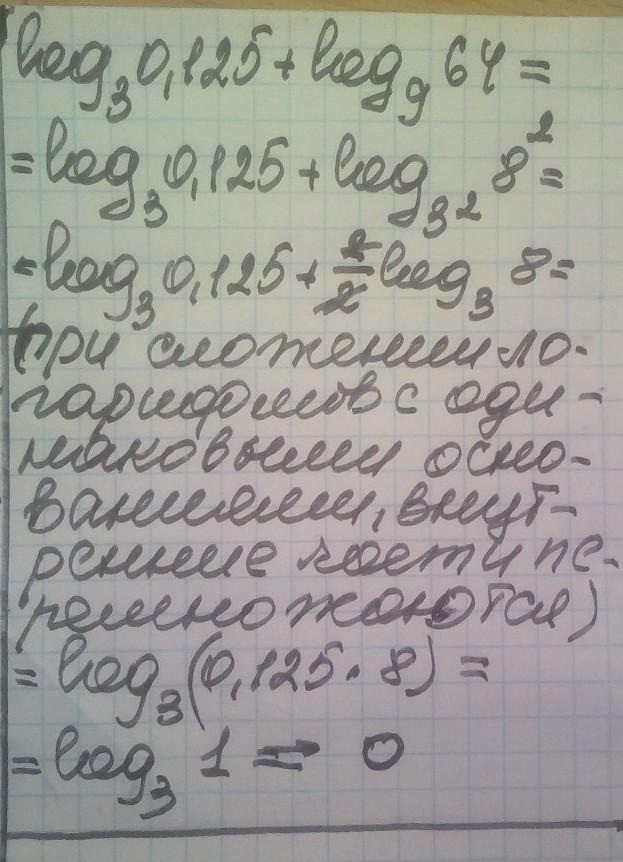 log₃ 0,125 + log₉ 64 =
= log₃ 0,125 + log₃² 8² =
= log₃ 0,125 + 2/2 log₃ 8 =
(при сложении ло-
гарифмов с оди-
наковыми осно-
ваниями, внут-
ренние части пе-
ремножаются)
= log₃ (0,125 · 8) =
= log₃ 1 = 0